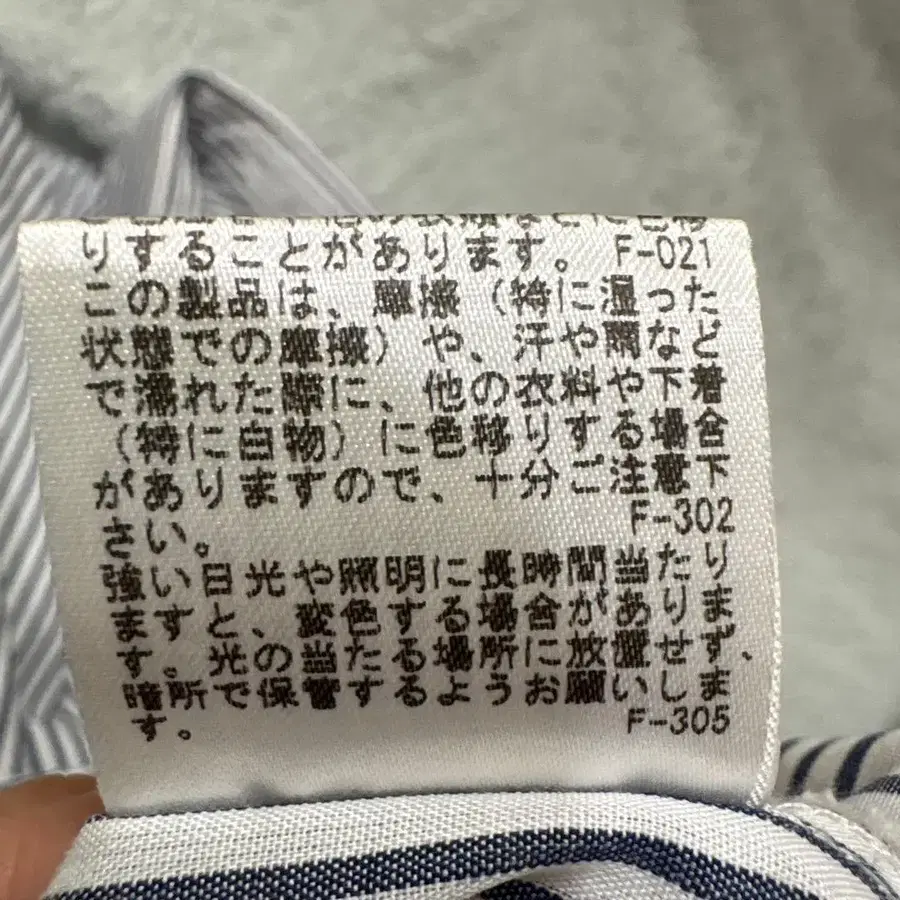 りすることがあります。 F-021
この製品は、摩擦（特に湿った
状態での摩擦）や、汗や雨など
で濡れた際に、他の衣料や下着
（特に白物）に色移りする場合
がありますので、十分ご注意下
さい。 F-302
強い日光や照明に長時間当たり
ますと、変色する場合がありま
す。光の当たる場所に放置せず、
暗所で保管するようお願いしま
す。 F-305